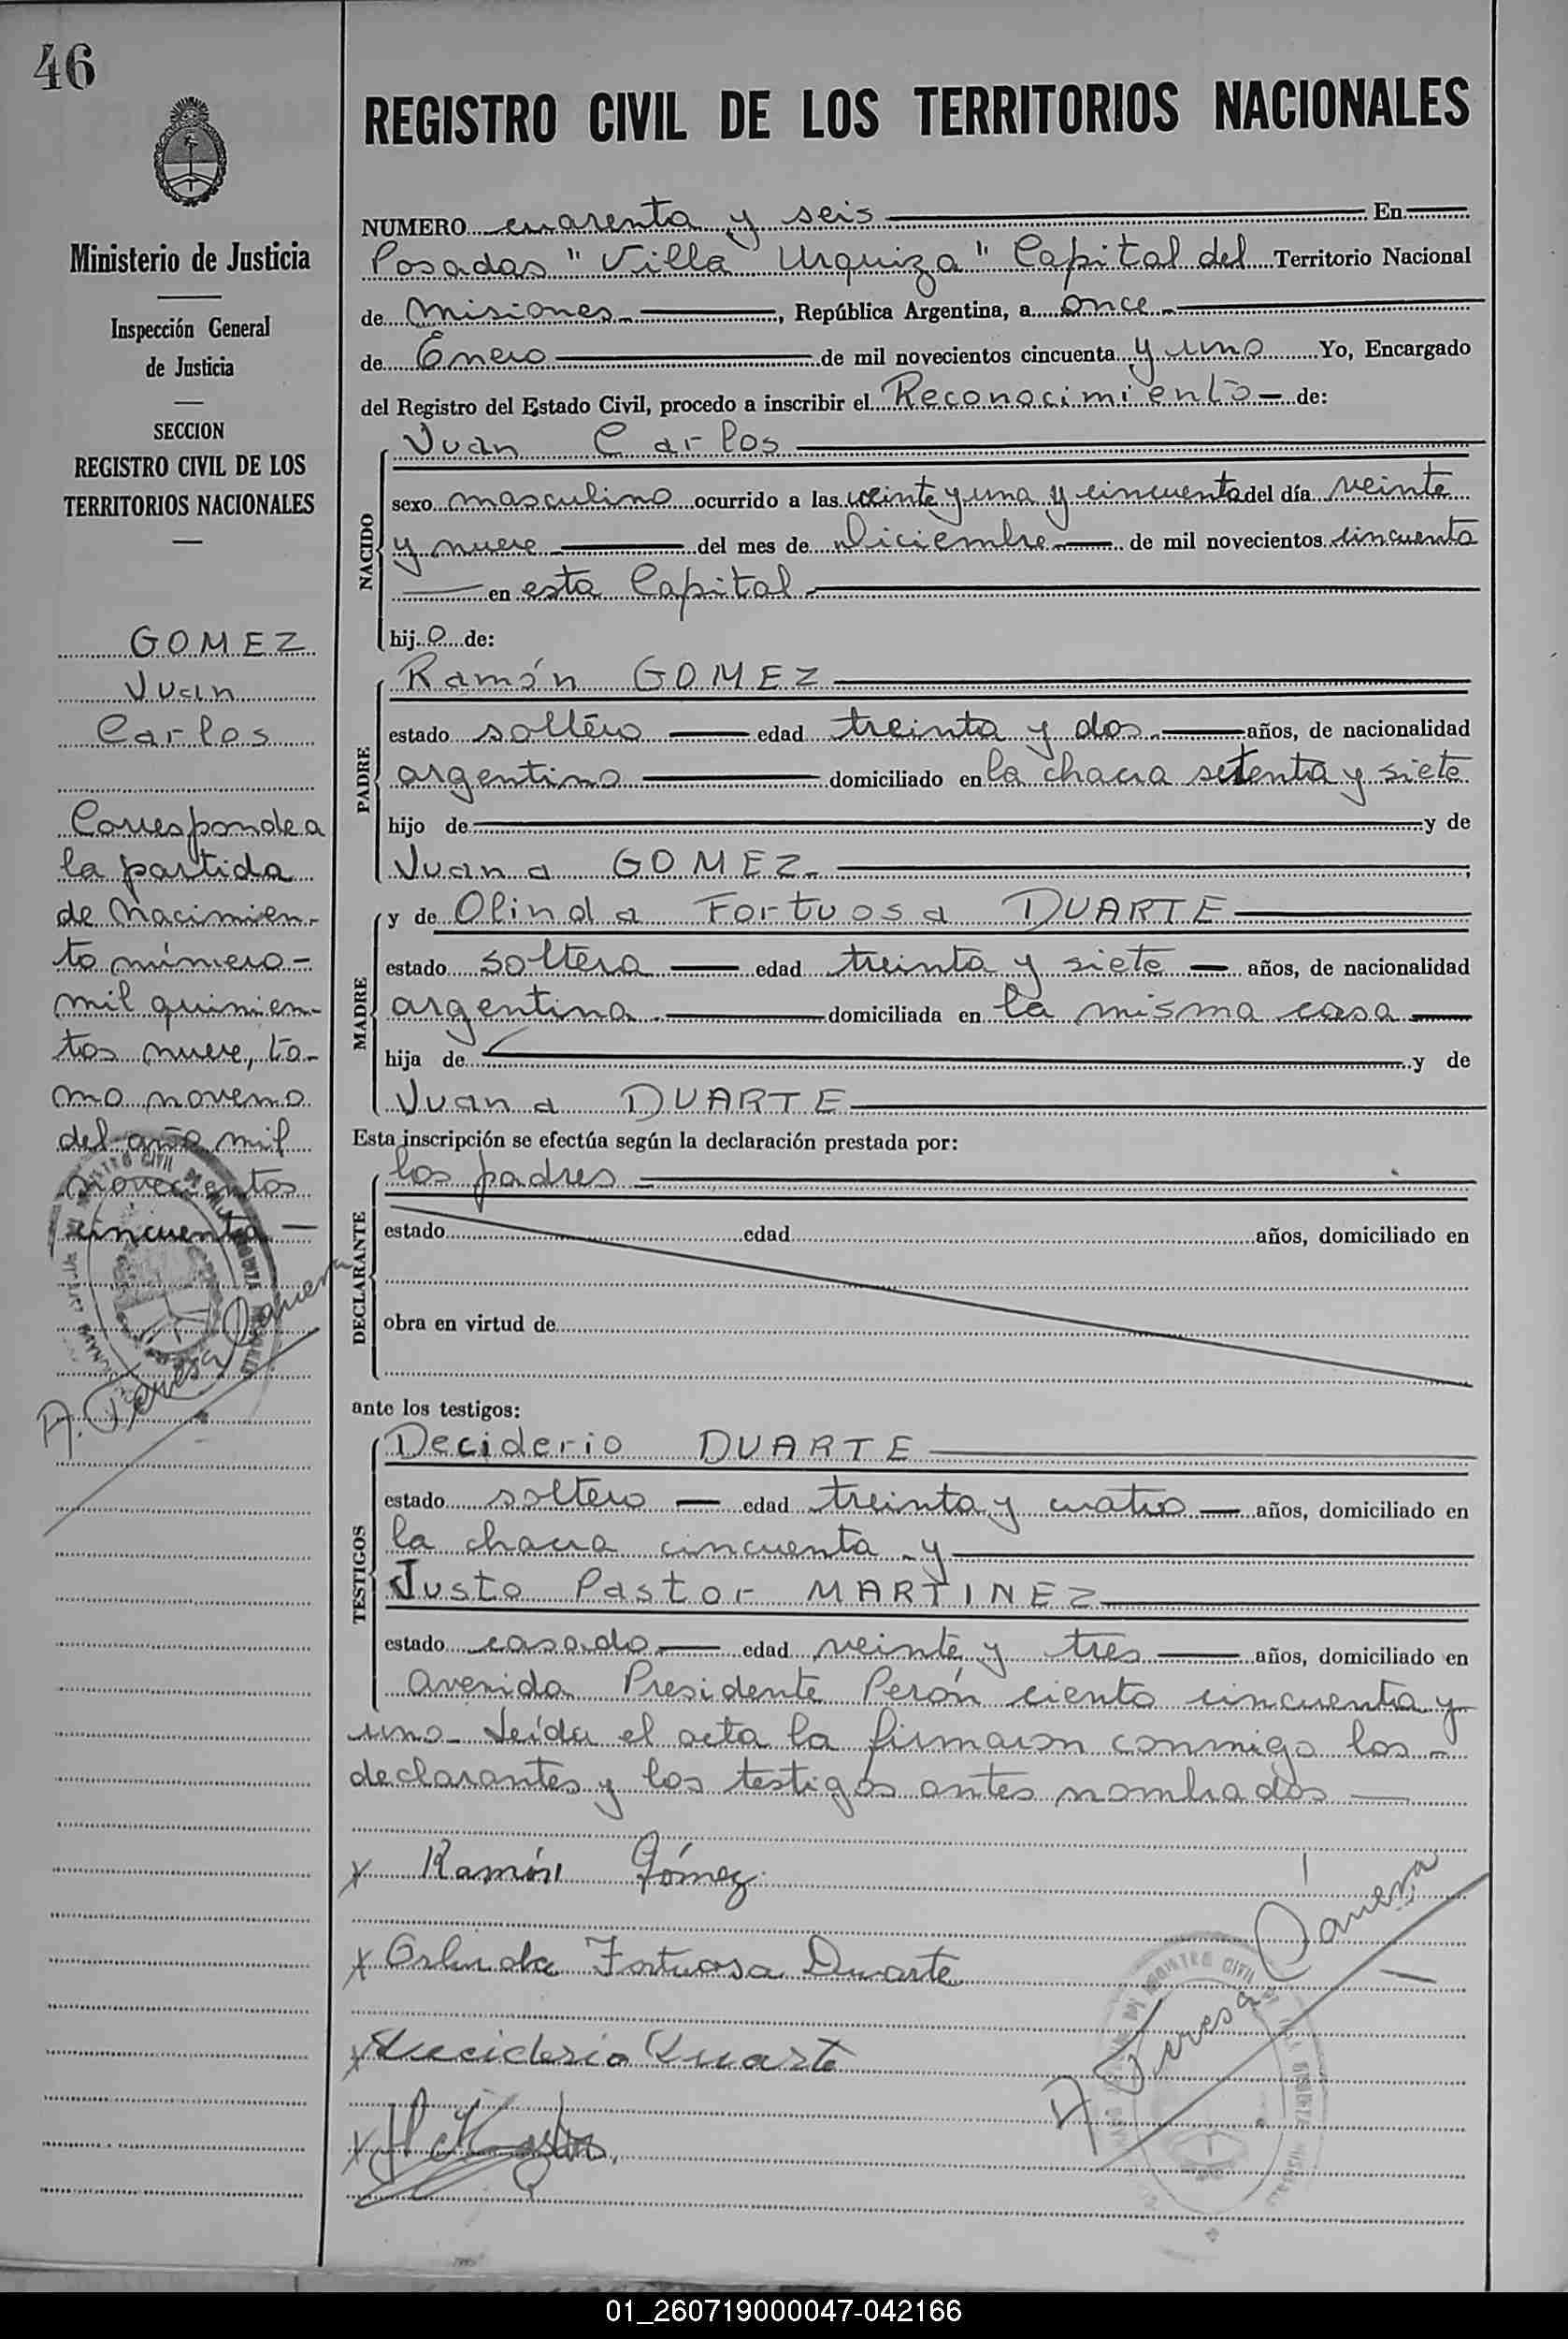 46
Ministerio de Justicia
Inspección General
de Justicia
SECCION
REGISTRO CIVIL DE LOS
TERRITORIOS NACIONALES
GOMEZ
Juan
Carlos
Corresponde a
la partida
de Nacimien-
to número-
mil quinien-
tos nueve, to-
mo noveno
del año mil
novecientos
cincuenta —
REGISTRO CIVIL DE LOS TERRITORIOS NACIONALES
NUMERO cuarenta y seis En
Posadas "Villa Urquiza" Capital del Territorio Nacional
de Misiones, República Argentina, a once
de Enero de mil novecientos cincuenta y uno Yo, Encargado
del Registro del Estado Civil, procedo a inscribir el Reconocimiento de:
NACIDO
Juan Carlos
sexo masculino ocurrido a las veinte y una y cincuenta del día veinte
y nueve del mes de Diciembre de mil novecientos cincuenta
en esta Capital
hijo de:
PADRE
Ramón GOMEZ
estado soltero edad treinta y dos años, de nacionalidad
argentino domiciliado en la chacra setenta y siete
hijo de y de
Juana GOMEZ
MADRE
y de Olinda Fortuosa DUARTE
estado soltera edad treinta y siete años, de nacionalidad
argentina domiciliada en la misma casa
hija de y de
Juana DUARTE
Esta inscripción se efectúa según la declaración prestada por:
DECLARANTE
los padres
estado edad años, domiciliado en
obra en virtud de
ante los testigos:
TESTIGOS
Deciderio DUARTE
estado soltero edad treinta y cuatro años, domiciliado en
la chacra cincuenta y
Justo Pastor MARTINEZ
estado casado edad veinte y tres años, domiciliado en
avenida Presidente Perón ciento cincuenta y
uno- Leída el acta la firmaron conmigo los -
declarantes y los testigos antes nombrados —
x Ramón Gómez
x Orlinda Fortuosa Duarte
x Deciderio Duarte
x
A. Teresa
01_260719000047-042166